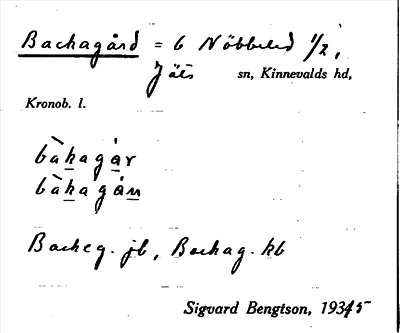 Backagård = 6 Nöbbeled 1/2,
Jäts sn, Kinnevalds hd,
Kronob. l.
bàhagår
bàhagån
Backeg. jb, Backag. kb
Sigvard Bengtson, 1935